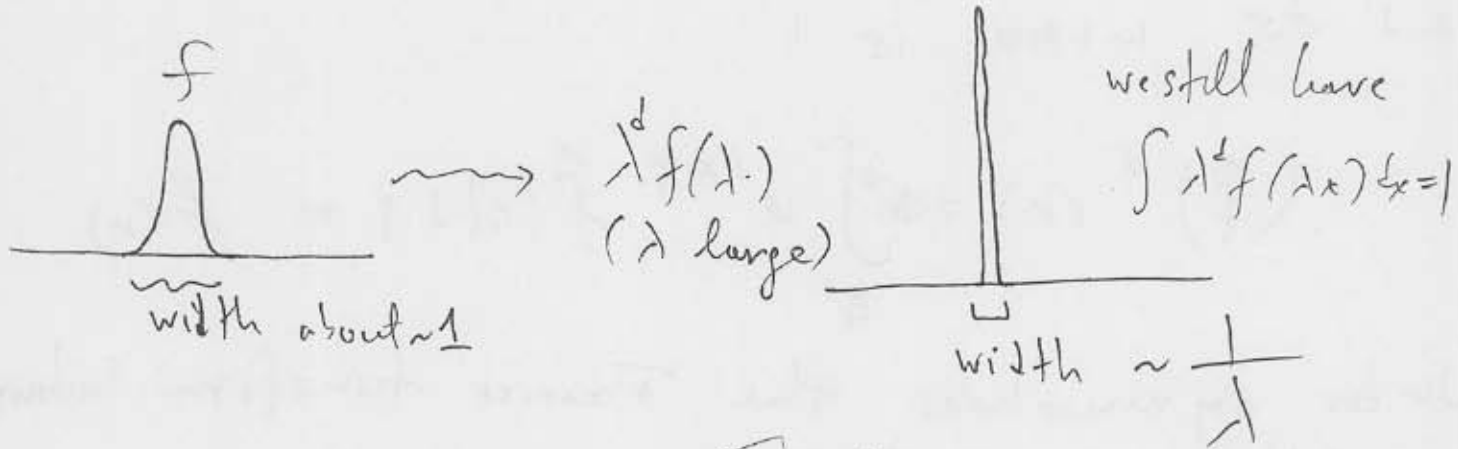 f
width about ~ 1
λ^d f(λ·)
(λ large)
we still have
∫ λ^d f(λx) dx = 1
width ~ 1/λ